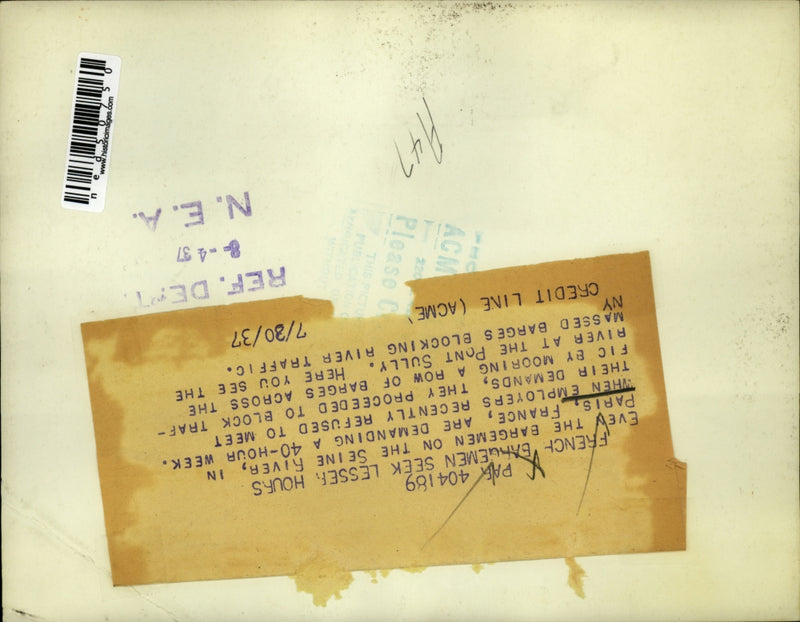 PAR 404189
FRENCH BARGEMEN SEEK LESSER HOURS
EVEN THE BARGEMEN ON THE SEINE RIVER, IN
PARIS, FRANCE, ARE DEMANDING A 40-HOUR WEEK.
WHEN EMPLOYERS RECENTLY REFUSED TO MEET
THEIR DEMANDS, THEY PROCEEDED TO BLOCK TRAF-
FIC BY MOORING A ROW OF BARGES ACROSS THE
RIVER AT THE PONT SULLY. HERE YOU SEE THE
MASSED BARGES BLOCKING RIVER TRAFFIC.
NY
CREDIT LINE (ACME) 7/30/37
REF. DEPT.
8-4 37
N. E. A.
ACM
Please C
THIS PICTU
A47
ned50750
www.historicimages.com